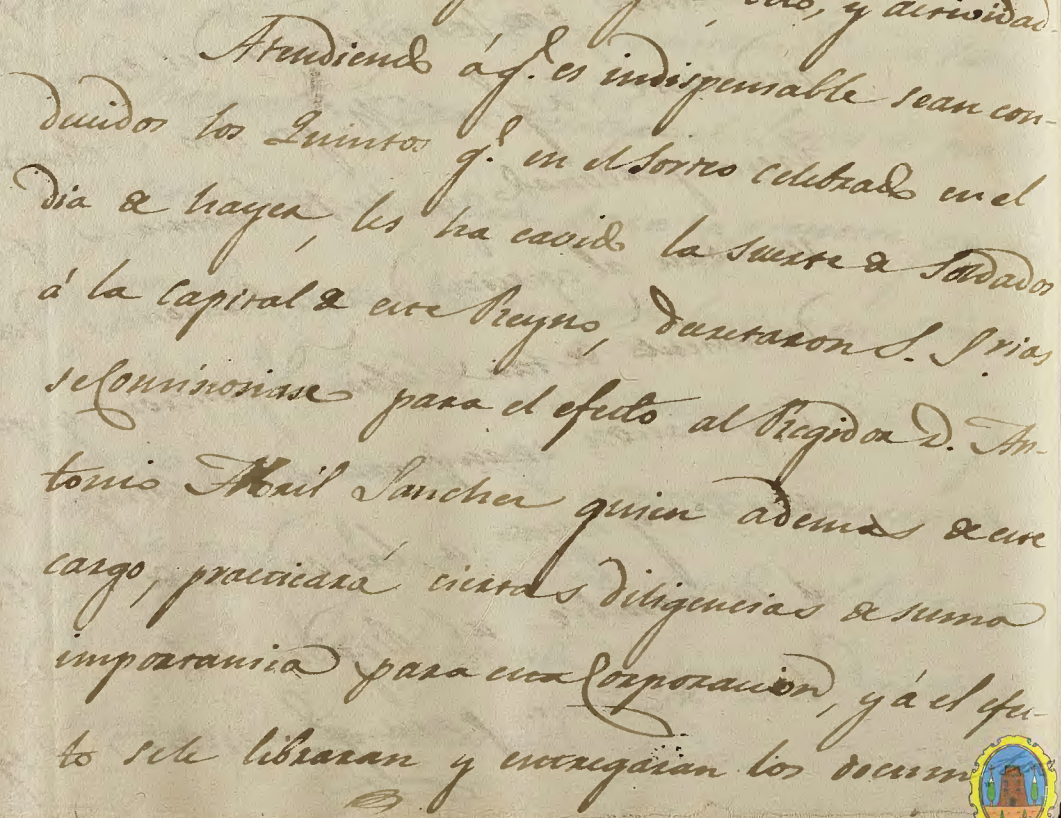 y actividad
Atendiendo á q.e es indispensable sean con-
ducidos los Quintos q.e en el Sorteo celebrado en el
dia de hayer, les ha cavido la Suerte de Soldados
á la Capital de este Reyno, decretaron S. Srias
se Comisionase para el efecto al Regidor D. An-
tonio Abril Sanchez quien ademas de este
cargo, practicará ciertas diligencias de suma
importancia para esta Corporacion, y á el efec-
to se le libraran y entregaran los docum